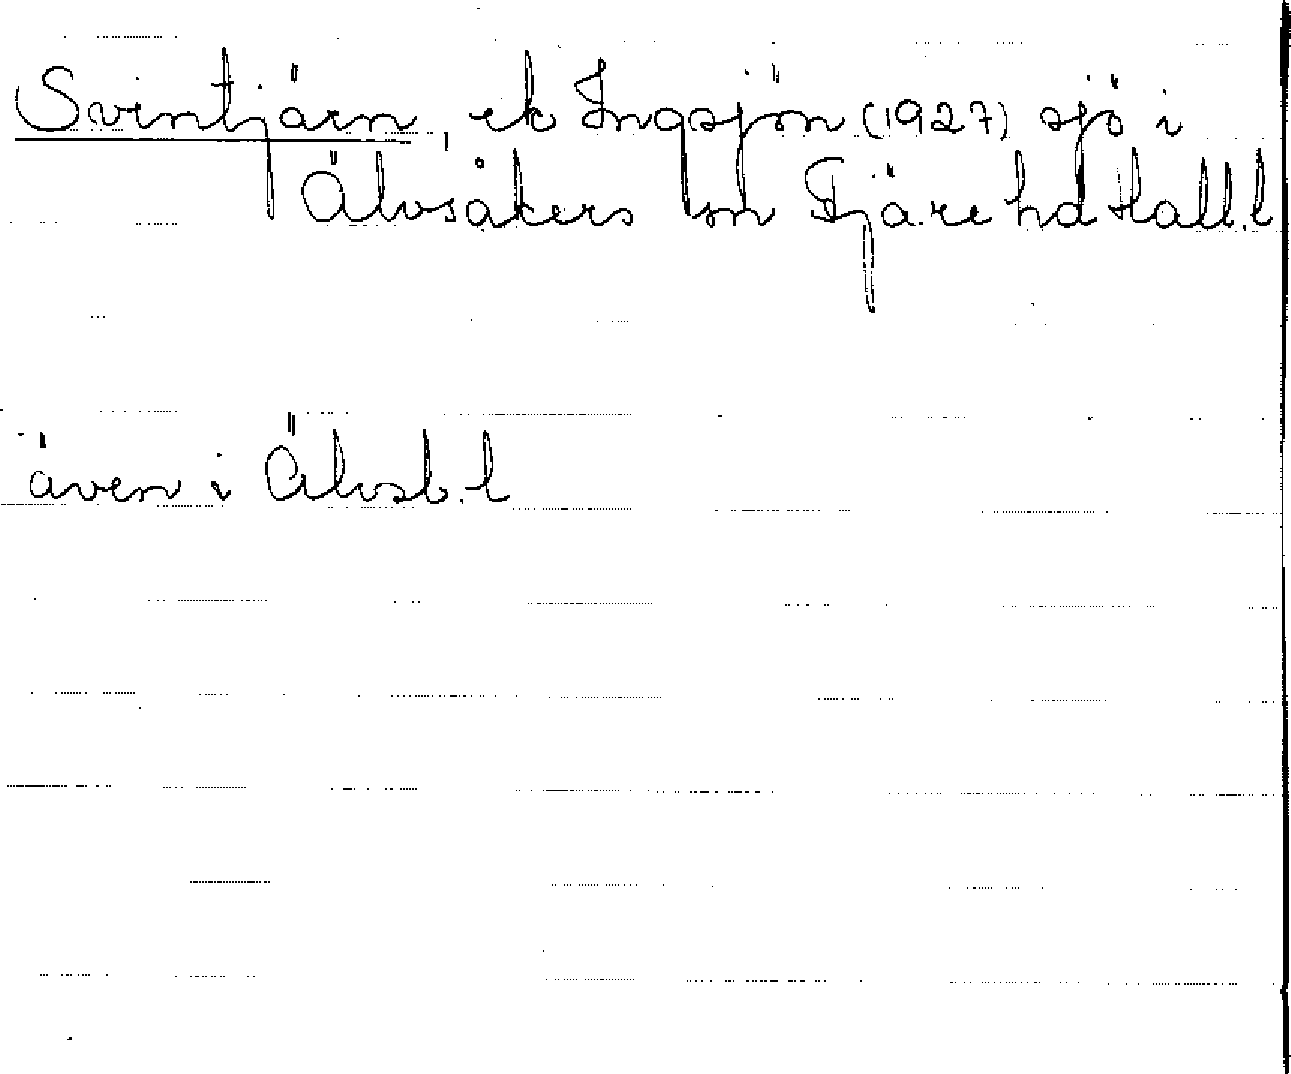 Svintjärn, ek Ingsjön (1927) sjö i
Älvsåkers sn Fjäre hd Hall.l
även i Älvsb.l